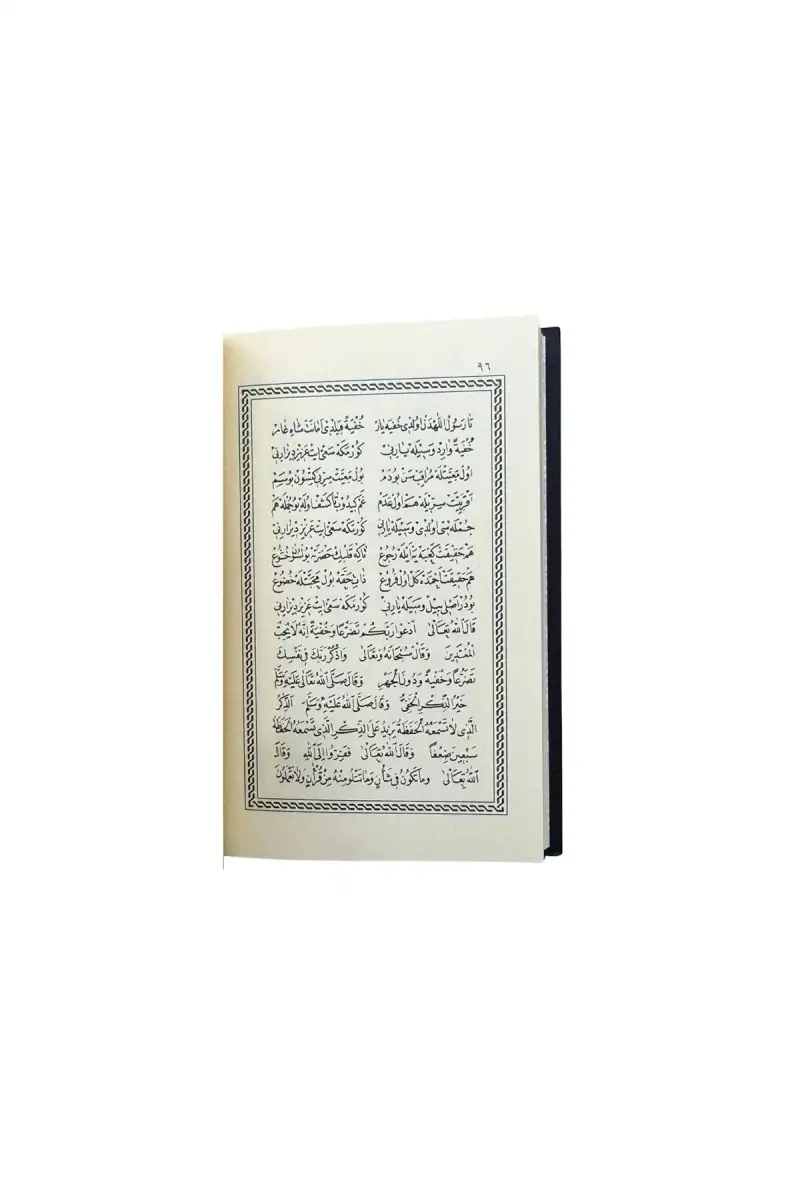 ٩٦
تا رسول اللهدن اولدى خفيه يار خفية قيلدى امانت شاه غار
خفية وارد وسيله يا ربى كورمكه سعى ايت عزيز ديزارنى
اول معيتله مراقب سن بودم بول معيت سرنى كيتسون بوسم
اقربيت سريله هم اول عدم غم كيدوب تا كشف اوله بو جمله هم
جمله سى اولدى وسيله يا ربى كورمكه سعى ايت عزيز ديزارنى
هم حقيقت كعبه يه ايله رجوع تا كه قلبك حضرته بولسون خشوع
هم حقيقت احمده كل اول فروع ذات حقه بول محبتله خضوع
بودر اصلى بيل وسيله يا ربى كورمكه سعى ايت عزيز ديزارنى
قَالَ اللهُ تَعَالَى اُدْعُوا رَبَّكُمْ تَضَرُّعًا وَخُفْيَةً اِنَّهُ لَا يُحِبُّ
الْمُعْتَدِينَ وَقَالَ سُبْحَانَهُ وَتَعَالَى وَاذْكُرْ رَبَّكَ فِي نَفْسِكَ
تَضَرُّعًا وَخُفْيَةً وَدُونَ الْجَهْرِ وَقَالَ صَلَّى اللهُ تَعَالَى عَلَيْهِ وَسَلَّمَ
خَيْرُ الذِّكْرِ الْخَفِيُّ وَقَالَ صَلَّى اللهُ عَلَيْهِ وَسَلَّمَ اَلذِّكْرُ
الَّذِي لَا تَسْمَعُهُ الْحَفَظَةُ يَزِيدُ عَلَى الذِّكْرِ الَّذِي تَسْمَعُهُ الْحَفَظَةُ
سَبْعِينَ ضِعْفًا وَقَالَ اللهُ تَعَالَى فَفِرُّوا اِلَى اللهِ وَقَالَ
اللهُ تَعَالَى وَمَا تَكُونُ فِي شَأْنٍ وَمَا تَتْلُو مِنْهُ مِنْ قُرْآنٍ وَلَا تَعْمَلُونَ